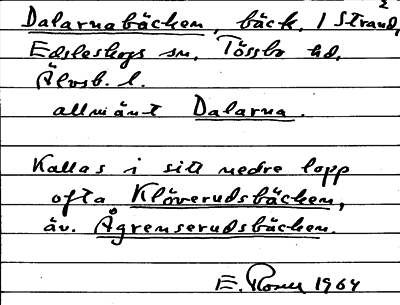 Dalarnabäcken, bäck, i Strand,
Edsleskogs sn, Tössbo hd,
Älvsb. l.
allmänt Dalarna.
Kallas i sitt nedre lopp
ofta Klöverudsbäcken,
äv. Ågrenserudsbäcken.
E. 1964